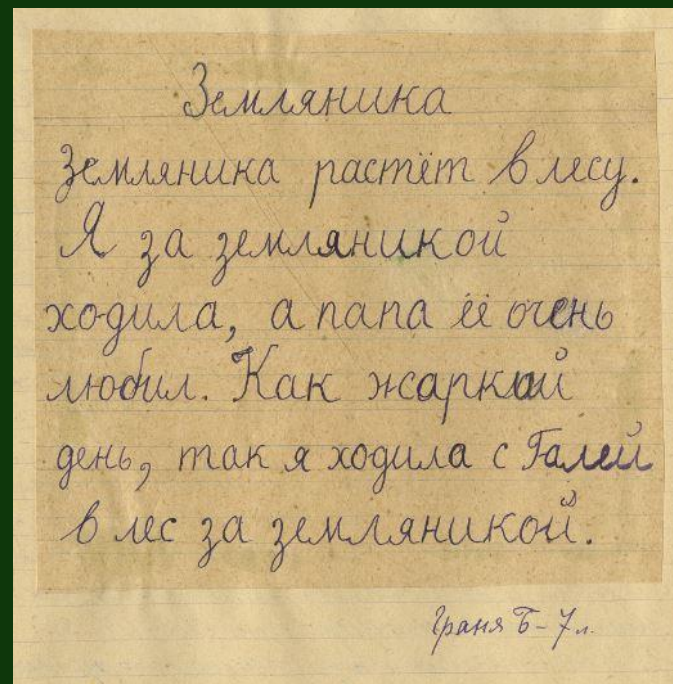 Земляника
Земляника растёт в лесу.
Я за земляникой
ходила, а папа её очень
любил. Как жаркий
день, так я ходила с Галей
в лес за земляникой.
Граня Б - 7 л.